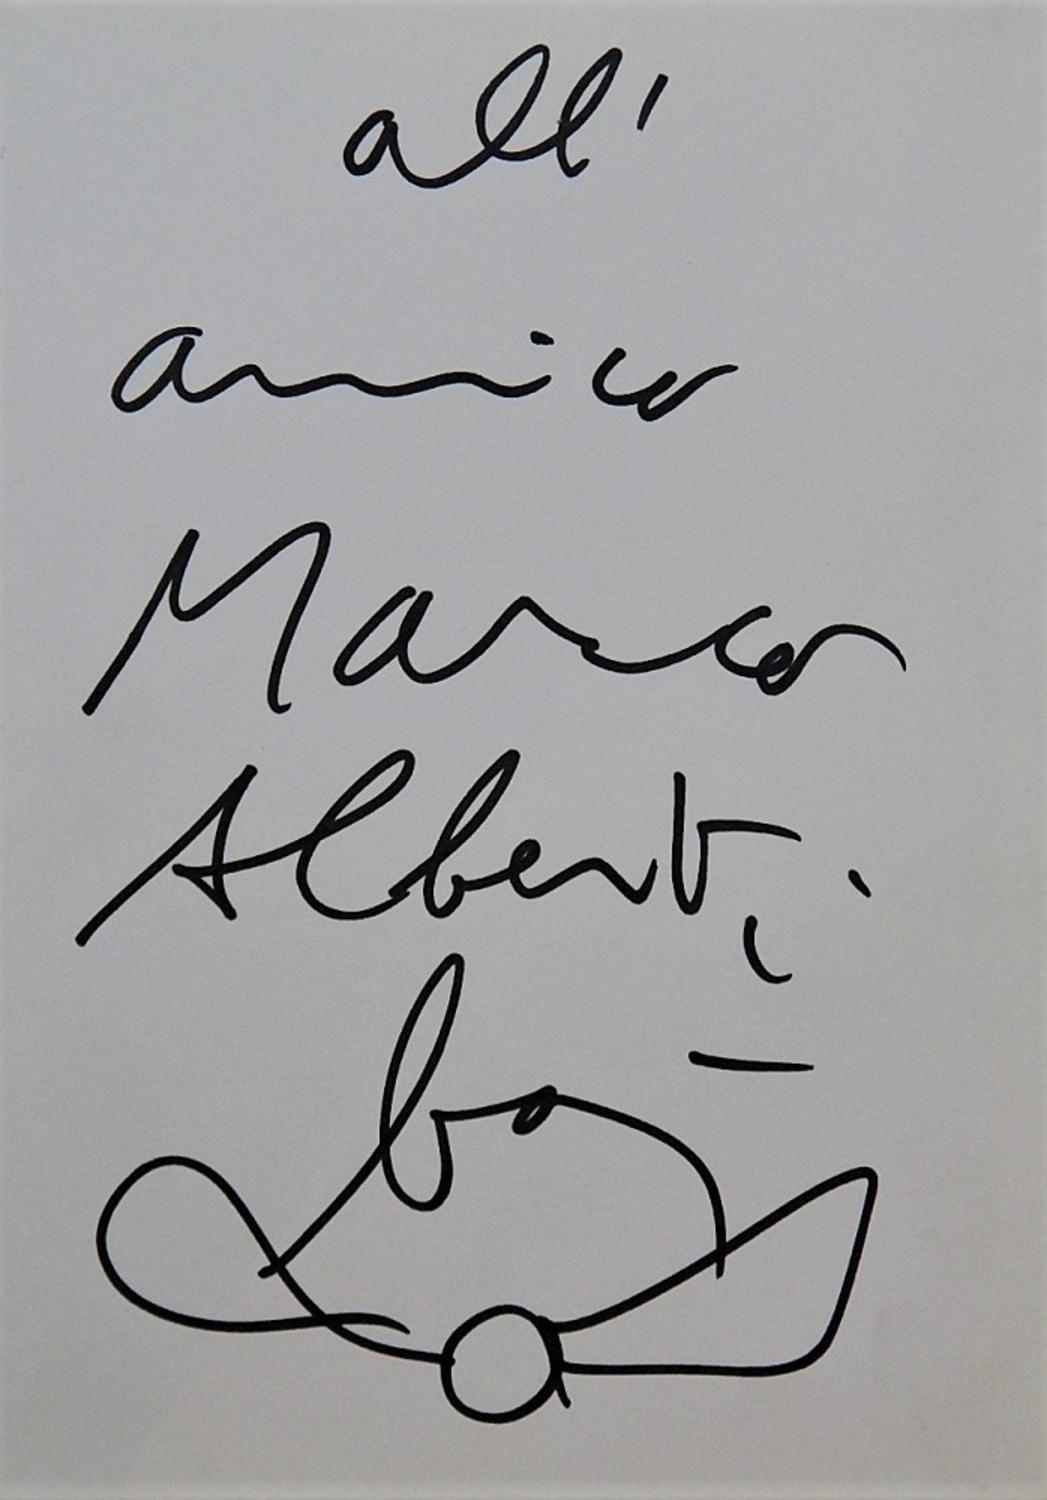 all'
amico
Marco
Alberti.